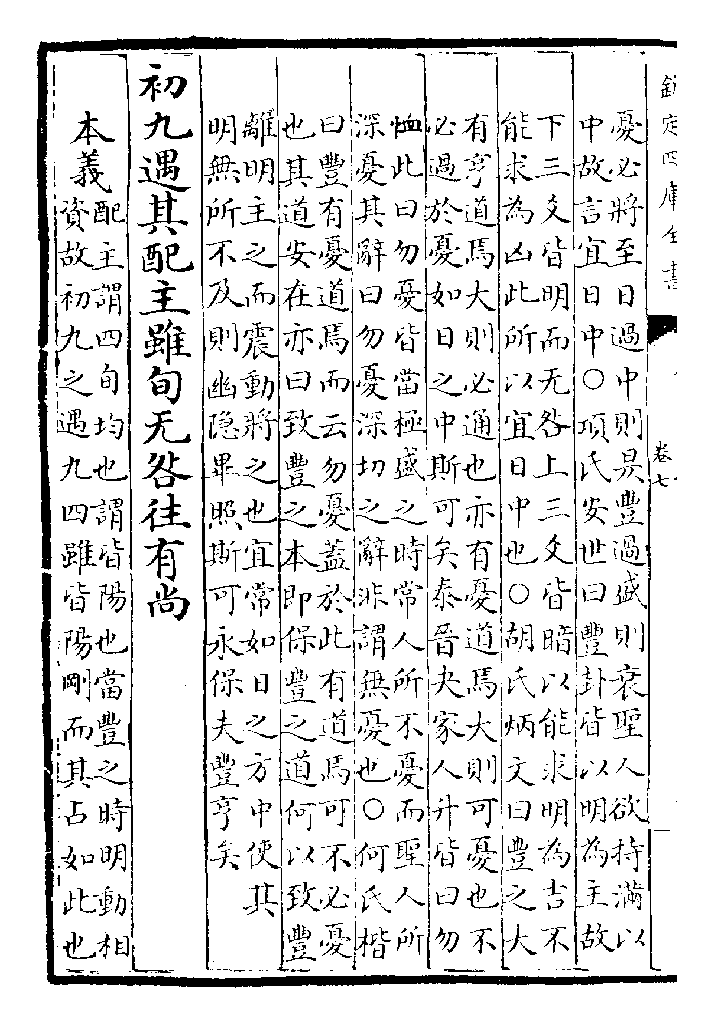 欽定四庫全書
卷七
憂必將至日過中則昃豐過盛則衰聖人欲持滿以
中故言宜日中○項氏安世曰豐卦皆以明為主故
下三爻皆明而无咎上三爻皆暗以能求明為吉不
能求為凶此所以宜日中也○胡氏炳文曰豐之大
有亨道焉大則必通也亦有憂道焉大則可憂也不
必過於憂如日之中斯可矣泰晉夬家人升皆曰勿
恤此曰勿憂皆當極盛之時常人所不憂而聖人所
深憂其辭曰勿憂深切之辭非謂無憂也○何氏楷
曰豐有憂道焉而云勿憂蓋於此有道焉可不必憂
也其道安在亦曰致豐之本即保豐之道何以致豐
離明主之而震動將之也宜常如日之方中使其
明無所不及則幽隱畢照斯可永保夫豐亨矣
初九遇其配主雖旬无咎往有尚
本義配主謂四旬均也謂皆陽也當豐之時明動相
資故初九之遇九四雖皆陽剛而其占如此也